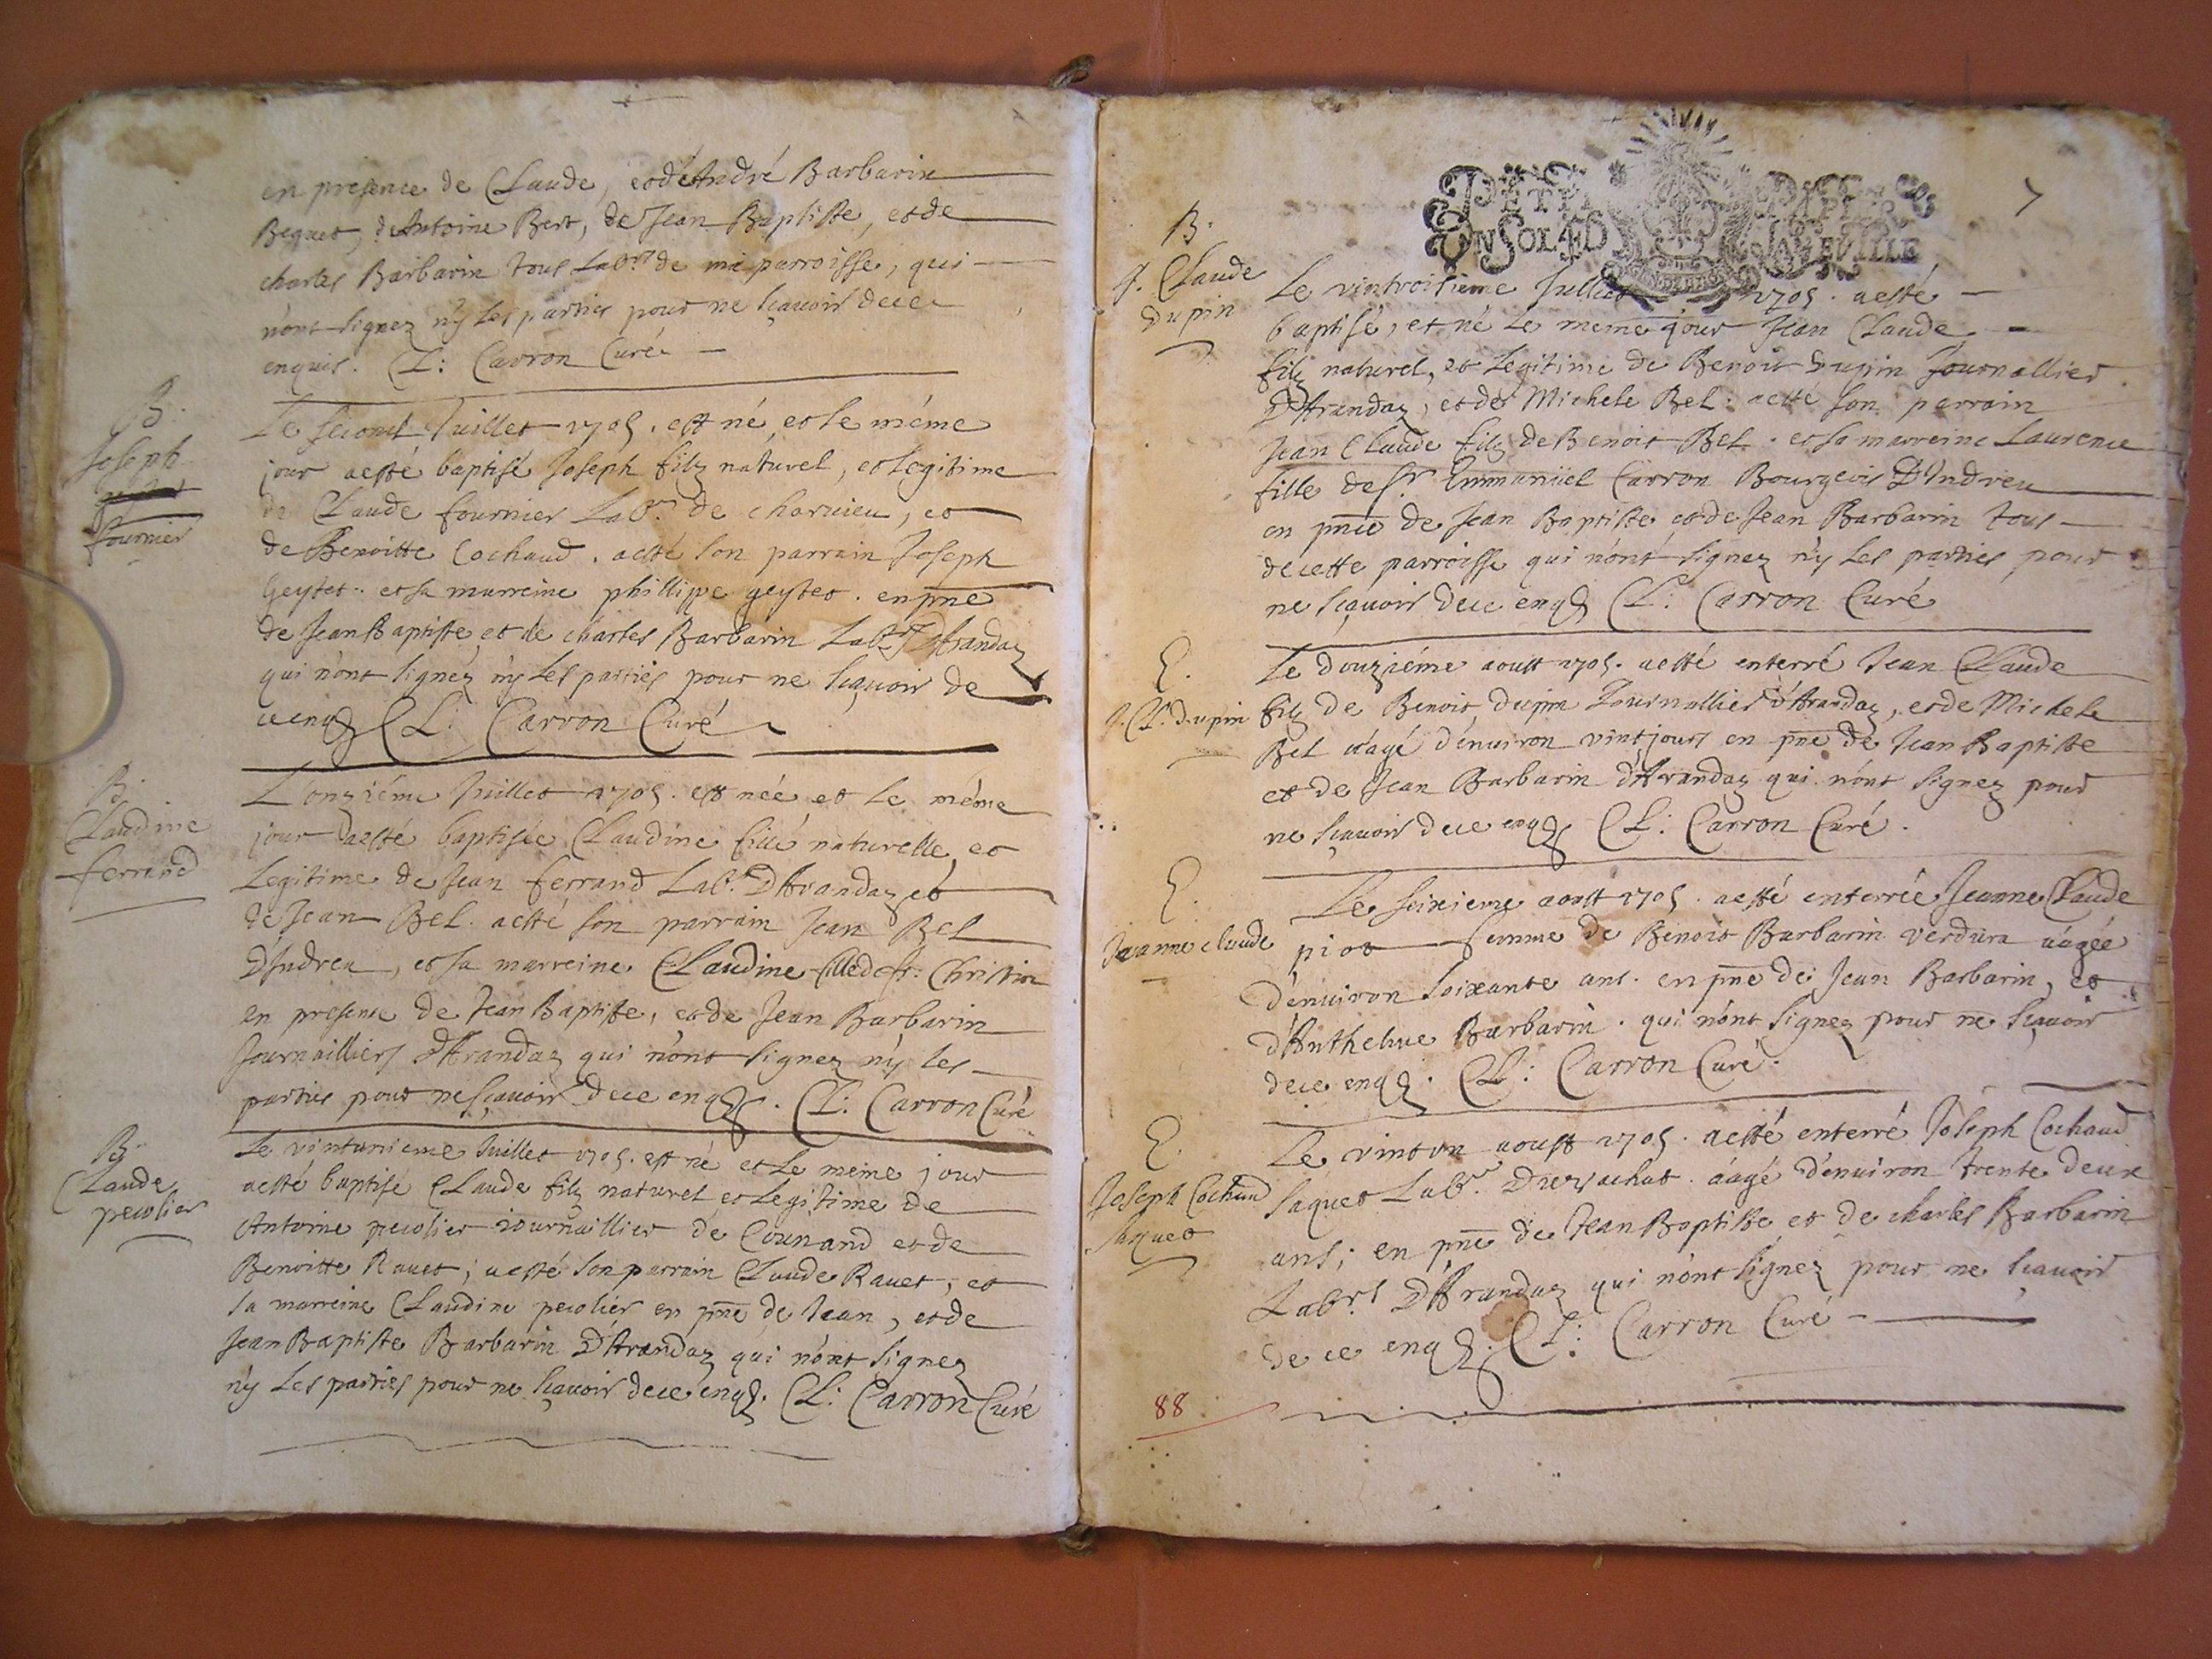 en presence de Claude, et d'André Barbarin
Beguet, d'Antoine Bert, de Jean Baptiste, et de
charles Barbarin tous Labrs. de ma parroisse, qui
n'ont signez n'y les parties pour ne sçavoir de ce
enquis. Cl: Carron Curé
B.
Joseph
fournier
Le second Juillet 1705. est né, et le méme
jour a esté baptisé Joseph filz naturel, et legitime
de Claude fournier Labr. de charvieu, et
de Benoitte Cochaud. a esté son parrain Joseph
Geytet. et sa marreine phillippe geytet. en pnce
de Jean Baptiste et de charles Barbarin Labrs D'Arandaz
qui n'ont signéz n'y les parties pour ne sçavoir de
ce enqs Cl: Carron Curé
B.
Claudine
ferrand
L'onziéme Juillet 1705. est née et le méme
jour a esté baptisée Claudine fille naturelle, et
Legitime de Jean ferrand Labr. D'Arandaz et
de Jean Bel. a esté son parrain Jean Bel
D'Indreu, et sa marreine Claudine fille de sr. Christin
en presence de Jean Baptiste, et de Jean Barbarin
Journailliers D'Arandaz qui n'ont signez n'y les
parties pour ne sçavoir de ce enqs. Cl: Carron Curé
B.
Claude
pecolier
Le vintunieme Juillet 1705. est né et le meme jour
a esté baptisé Claude filz naturel et Legitime de
Antoine pecolier journaillier de Counand et de
Benoitte Ravet, a esté son parrain Claude Ravet, et
sa marreine Claudine pecolier en pnce de Jean, et de
Jean Baptiste Barbarin D'Arandaz qui n'ont signez
n'y les parties pour ne sçavoir de ce enqs. Cl: Carron Curé
PETIT PAPIER
UN SOL 4 D LA FEUILLE
7
B.
J. Claude
Dupin
Le vintroisieme Julliet 1705. a esté
baptisé, et né le meme jour Jean Claude
filz naturel, et Legitime de Benoit Dupin Journallier
D'Arandaz, et de Michele Bel. a esté son parrain
Jean Claude filz de Benoit Bel. et sa marreine Laurence
fille de sr. Emmanüel Carron Bourgeois D'Indreu
en pnce de Jean Baptiste et de Jean Barbarin tous
de cette parroisse qui n'ont signez n'y les parties pour
ne sçavoir de ce enqs Cl: Carron Curé
E.
J. Cl. dupin
Le douziéme aoust 1705. a esté enterré Jean Claude
filz de Benoit dupin Journallier d'Arandaz, et de Michele
Bel aâgé d'environ vint jours en pnce de Jean Baptiste
et de Jean Barbarin d'Arandaz qui n'ont signez pour
ne sçavoir de ce enqs Cl: Carron Curé.
E.
Jeanne claude
Le seizieme aoust 1705. a esté enterrée Jeanne Claude
piot femme de Benoit Barbarin Verdura aâgée
d'environ soixante ans. en pnce de Jean Barbarin, et
d'Anthelme Barbarin. qui n'ont signez pour ne sçavoir
de ce enqs. Cl: Carron Curé.
E.
Joseph Cochaud
saquet
Le vintun aoust 1705. a esté enterré Joseph Cochaud
saquet Labr. aâgé d'environ trente deux
ans; en pnce de Jean Baptiste et de charles Barbarin
Labrs D'Arandaz qui n'ont signez pour ne sçavoir
de ce enqs. Cl: Carron Curé
88